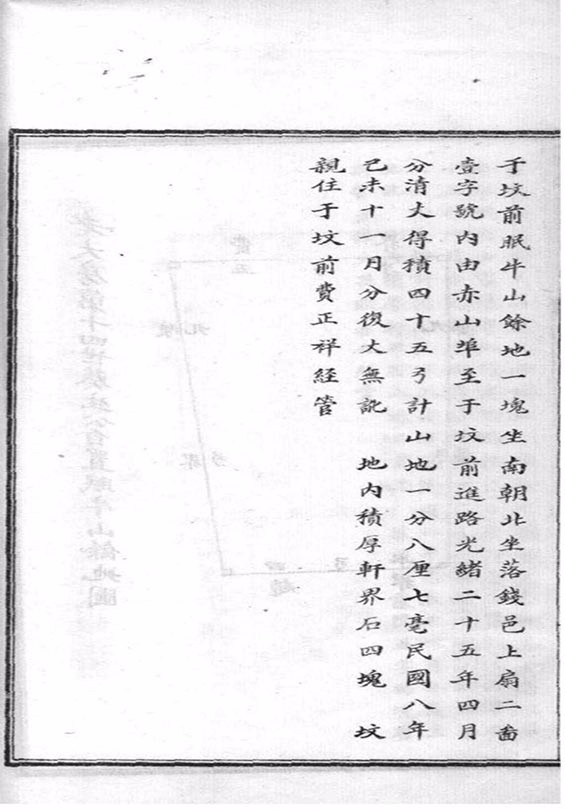 于坟前眠牛山餘地一塊坐南朝北坐落錢邑上扇二啚
壹字號内由赤山埠至于坟前進路光緒二十五年四月
分清丈得積四十五弓計山地一分八厘七毫民國八年
己未十一月分復丈無訛 地内積厚軒界石四塊 坟
親住于坟前費正祥經管